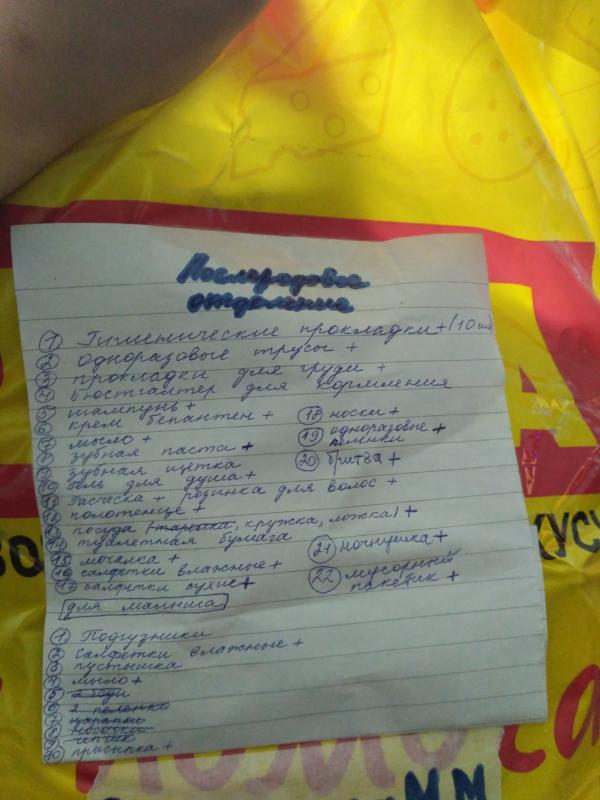 Послеродовое
отделение
1 Гигиенические прокладки + (10 шт)
2 одноразовые трусы +
3 прокладки для груди +
4 бюстгалтер для кормления
5 шампунь +
6 крем бепантен +
7 мыло +
8 зубная паста +
9 зубная щётка
10 гель для душа +
11 Расческа + резинка для волос +
12 полотенце +
13 посуда (тарелка, кружка, ложка) +
14 туалетная бумага
15 мочалка +
16 салфетки влажные +
17 салфетки сухие +
18 носки +
19 одноразовые
пеленки +
20 бритва +
21 ночнушка +
22 мусорный
пакетик +
для малыша
1 Подгузники
2 Салфетки влажные +
3 пустышка
4 мыло +
5 2 боди
6 2 пеленки
7 царапки
8 носочки
9 чепчик
10 присыпка +